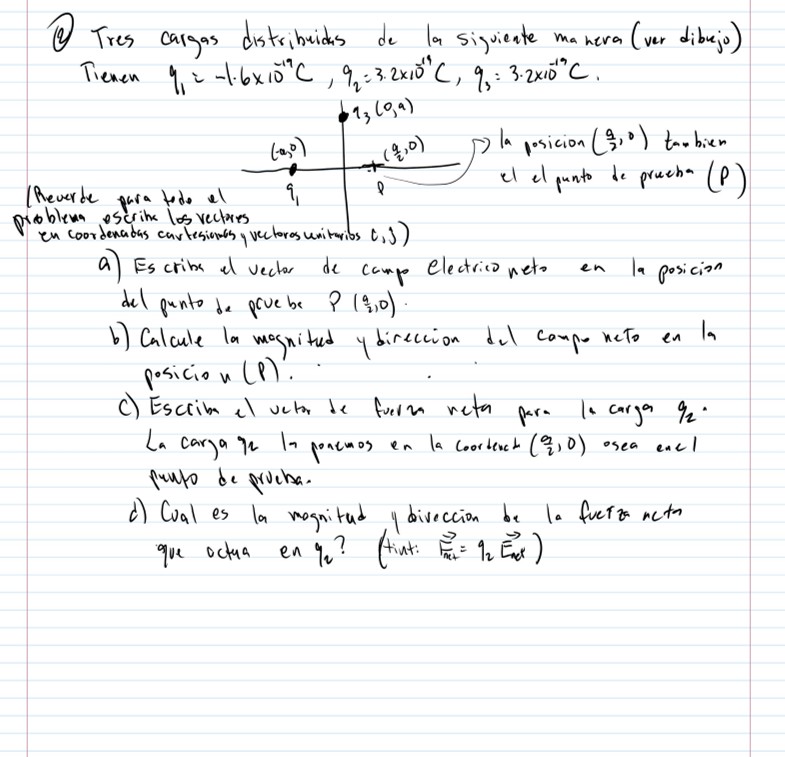 ② Tres cargas distribuidas de la siguiente manera (ver dibujo)
Tienen q₁ = -1.6x10⁻¹⁹C , q₂ = 3.2x10⁻¹⁹C, q₃ = 3.2x10⁻¹⁹C.
q₃ (0,a)
(-a,0)
(a/2,0)
q₁
P
la posicion (a/2,0) tambien
el el punto de prueba (P)
(Recuerde para todo el
problema escriba los vectores
en coordenadas cartesianas y vectores unitarios i, j)
a) Escriba el vector de campo electrico neto en la posicion
del punto de prueba P (a/2,0).
b) Calcule la magnitud y direccion del campo neto en la
posicion (P).
c) Escriba el vector de fuerza neta para la carga q₂.
La carga q₂ la ponemos en la coordenada (a/2,0) osea en el
punto de prueba.
d) Cual es la magnitud y direccion de la fuerza neta
que actua en q₂? (Hint: F⃗net = q₂ E⃗net)